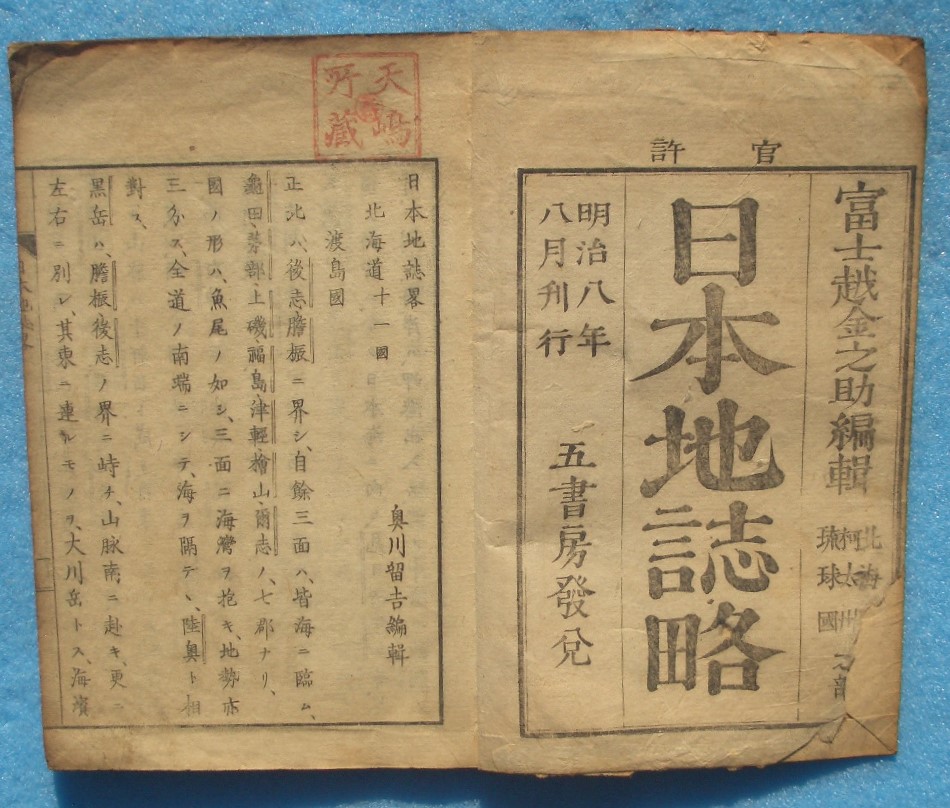 官許
富士越金之助編輯
北海
柯太州
琉球國
日本地誌略
明治八年
八月刊行
五書房發兌
天嶋
所藏
日本地誌畧
奥川留吉編輯
北海道十一國
渡島國
正北ハ、後志膽振ニ界シ、自餘三面ハ、皆海ニ臨ム、
龜田、茅部、上磯、福島、津輕、檜山、爾志ノ、七郡ナリ、
國ノ形ハ、魚尾ノ如シ、三面ニ海灣ヲ抱キ、地勢亦
三分ス、全道ノ南端ニシテ、海ヲ隔テヽ、陸奥ト相
對ス、
黒岳ハ、膽振後志ノ界ニ峙チ、山脉南ニ赴キ、更ニ
左右ニ別レ、其東ニ連ルモノヲ、大川岳トス、海濱